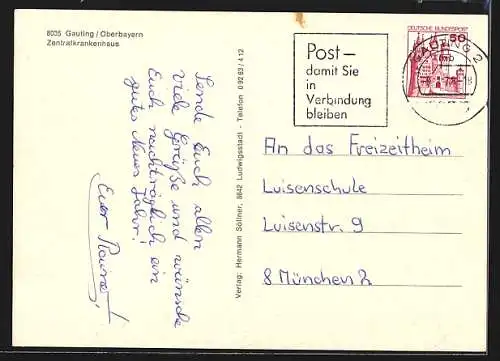 8035 Gauting / Oberbayern
Zentralkrankenhaus
Sende Euch allen
viele Grüße und wünsche
Euch nachträglich ein
gutes Neues Jahr!
Euer Rainer!
Verlag: Hermann Söllner, 8642 Ludwigsstadt - Telefon 0 92 63 / 4 12
Post –
damit Sie
in
Verbindung
bleiben
DEUTSCHE BUNDESPOST
50
GAUTING 2
An das Freizeitheim
Luisenschule
Luisenstr. 9
8 München 2